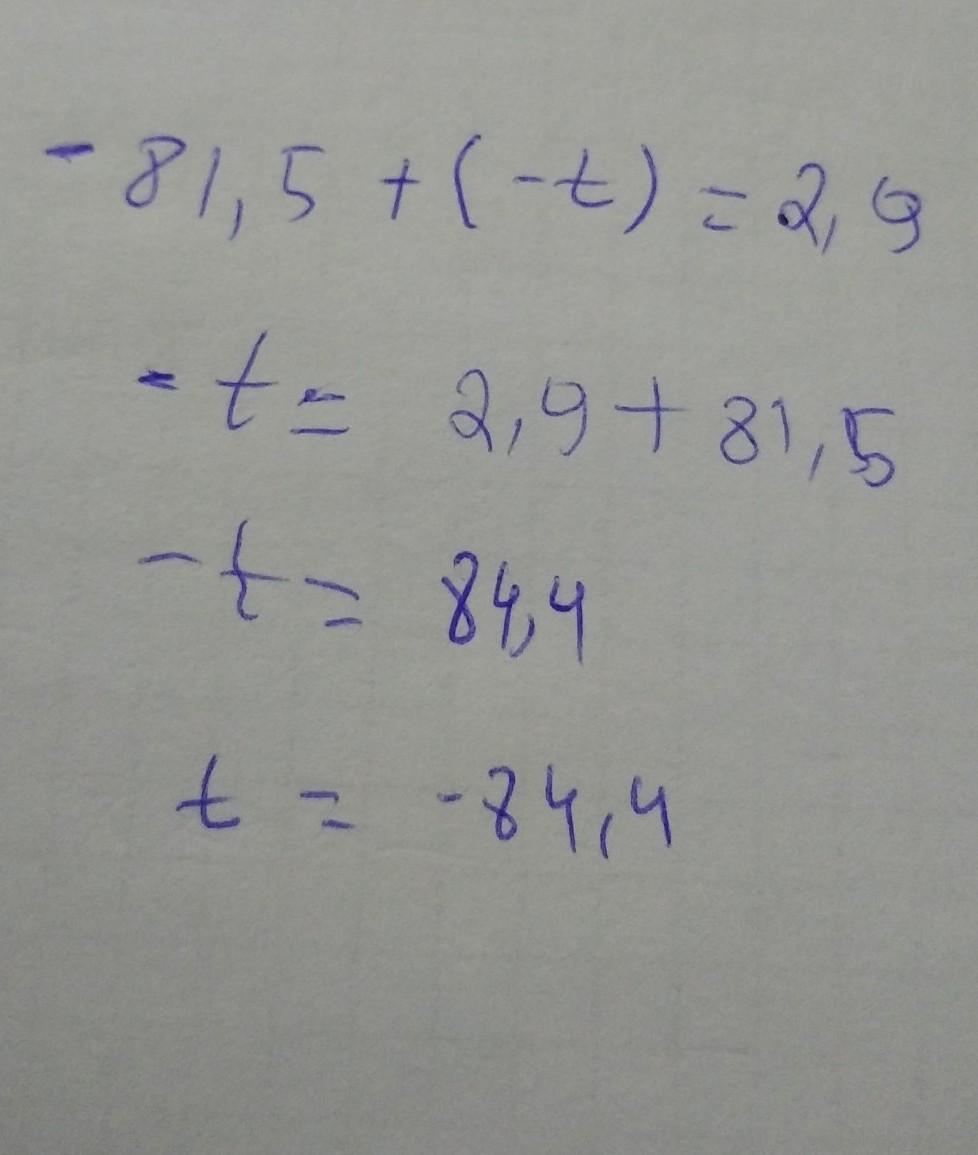 -81,5+(-t)=2,9
-t= 2,9+81,5
-t= 84,4
t = -84,4